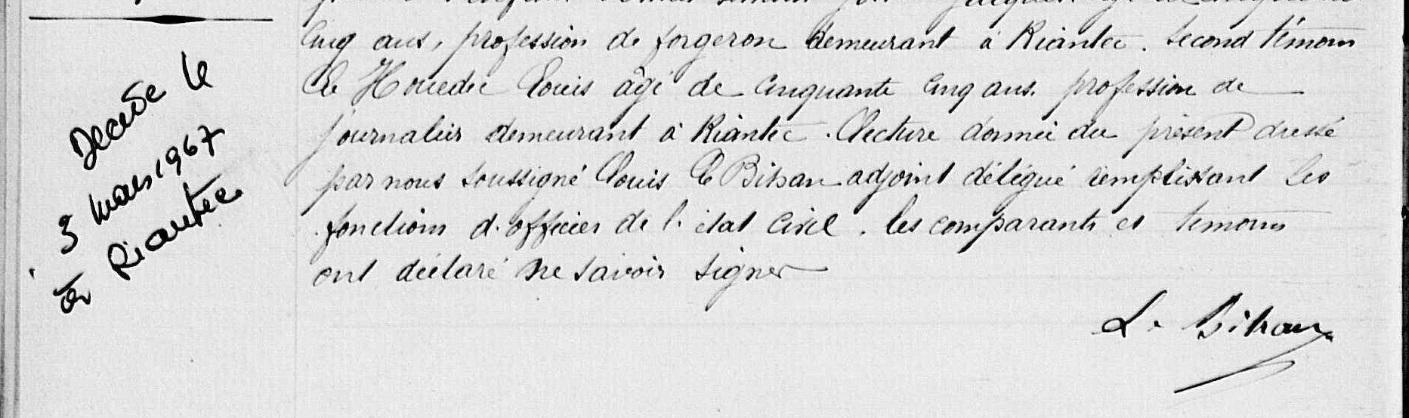 cinq ans, profession de forgeron demeurant à Riantec. Second témoin
Le Houedec Louis âgé de cinquante cinq ans. profession de
journalier demeurant à Riantec. Lecture donnée du présent dressé
par nous soussigné Louis Le Bihan adjoint délégué remplissant les
fonctions d'officier de l'état civil. les comparants et témoins
ont déclaré ne savoir signer
L. Bihan
Décédé le
3 mars 1967
à Riantec